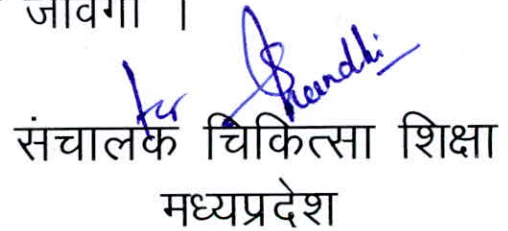 जावेगा ।
for
संचालक चिकित्सा शिक्षा
मध्यप्रदेश